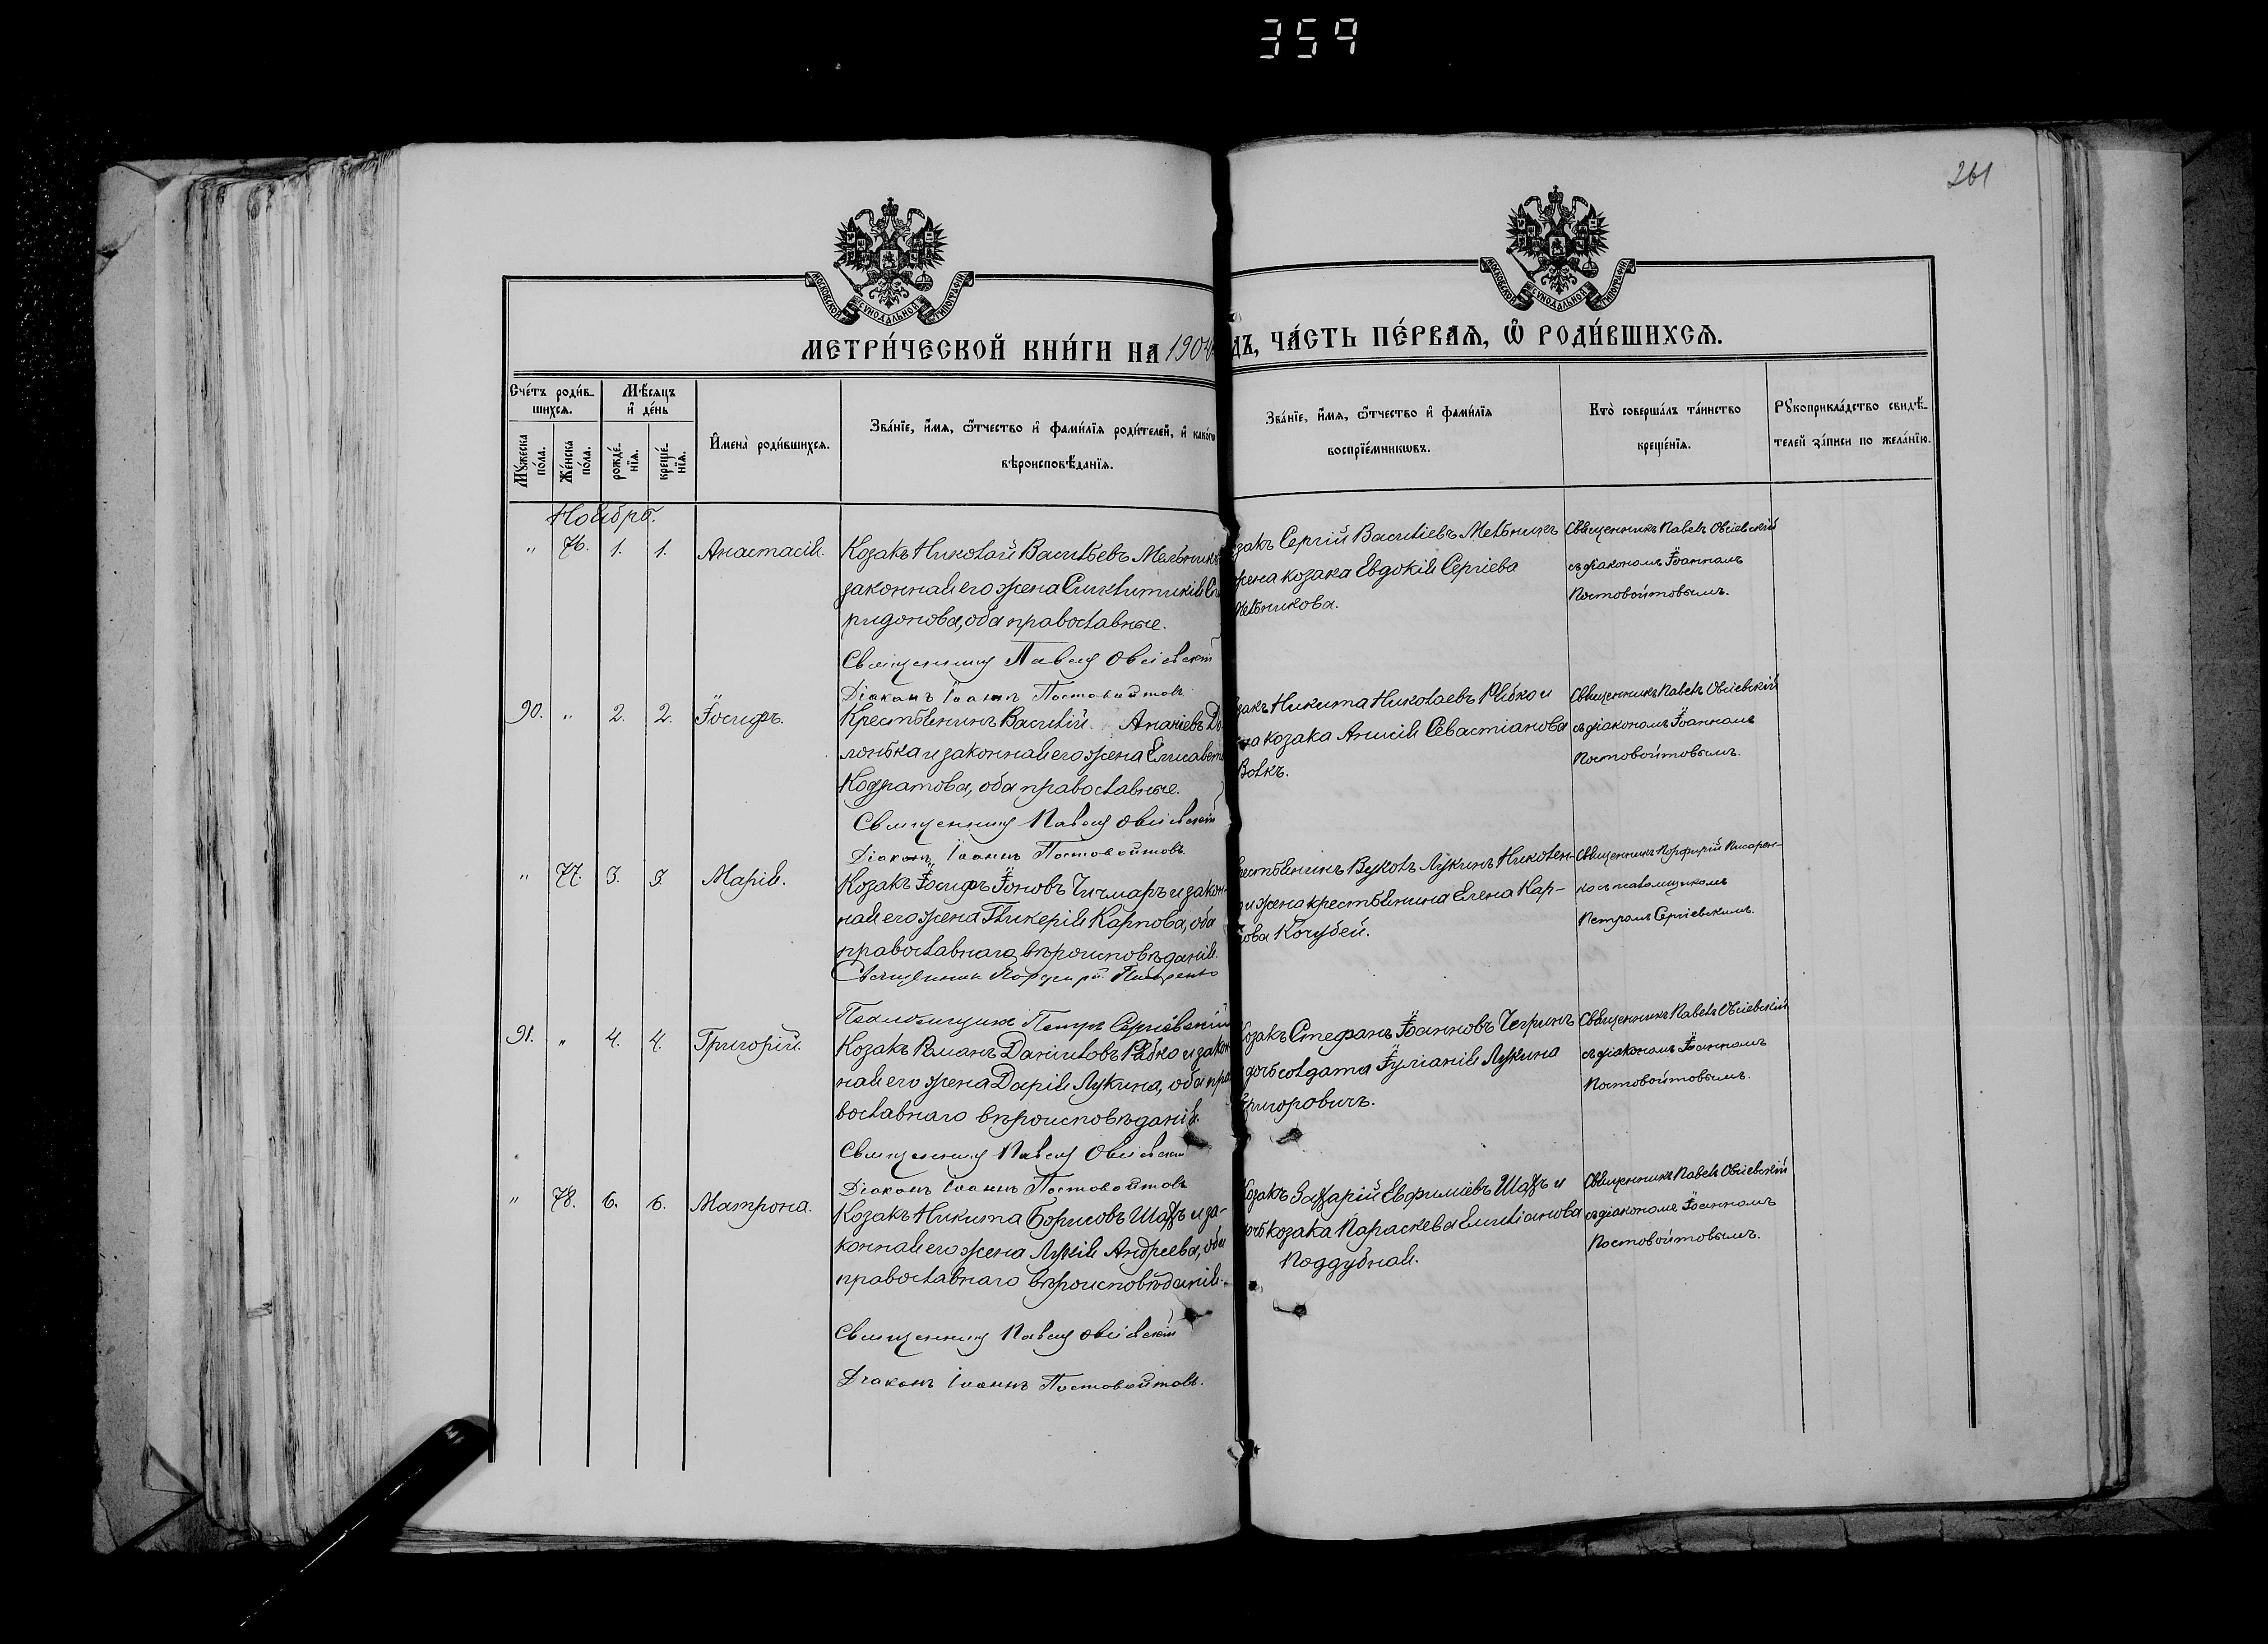 359
261
МОСКОВСКОЙ СѴНОДАЛЬНОЙ ТИПОГРАФІИ
МОСКОВСКОЙ СѴНОДАЛЬНОЙ ТИПОГРАФІИ
МЕТРИ́ЧЕСКОЙ КНИ́ГИ НА 1904
ДЪ, ЧА́СТЬ ПЕ́РВАЯ, Ѿ РОДИ́ВШИХСЯ.
Сче́тъ роди́в-
шихся.
Мѣ́сяцъ
и҆ де́нь
Мꙋ́жеска по́ла.
Же́нска по́ла.
рожде́-нїя.
креще́-нїя.
И҆мена̀ роди́вшихся.
Зва́нїе, и҆́мя, ѻ҆́тчество и҆ фами́лїя роди́телей, и҆ како́гѡ
вѣроисповѣ́данїя.
Зва́нїе, и҆́мя, ѻ҆́тчество и҆ фами́лїя
воспрїе́мникѡвъ.
Кто̀ соверша́лъ та́инство
креще́нїя.
Рꙋкоприкла́дство свидѣ́-
телей за́писи по жела́нїю.
Ноября.
" 76. 1. 1. Анастасія.
Козакъ Николай Васильевъ Мельникъ
законная его жена Сикл​итикія Спи
ридонова, оба православные.
Священникъ Павелъ Овсіевскій
Діаконъ Іоаннъ Постовойтовъ
закъ Сергій Василіевъ Мельникъ
жена козака Евдокія Сергіева
Мельникова.
Священникъ Павелъ Овсіевскій
съ діакономъ Іоанномъ
Постовойтовымъ.
90. " 2. 2. Іосифъ.
Крестьянинъ Василій Ананіевъ До
лонька и законная его жена Елисавета
Кодратова, оба православные.
Священникъ Павелъ Овсіевскій
Діаконъ Іоаннъ Постовойтовъ
закъ Никита Николаевъ Рябко и
на козака Анисія Севастіанова
Волкъ.
Священникъ Павелъ Овсіевскій
съ діакономъ Іоанномъ
Постовойтовымъ.
" 77. 3. 3. Марія.
Козакъ Іосифъ Іоновъ Чичмаръ и закон-
ная его жена Гликерія Карпова, оба
православнаго вѣроисповѣданія.
Священник Порфирій Писаренко
Псаломщикъ Петръ Сергіевскій
рестьянинъ Вуколъ Лукинъ Николен-
и жена крестьянина Елена Кар-
пова Кочубей.
Священникъ Порфирій Писарен-
ко съ псаломщикомъ
Петромъ Сергіевскимъ.
91. " 4. 4. Григорій.
Козакъ Романъ Даніиловъ Рябко и закон
ная его жена Дарія Лукина, оба пра
вославнаго вѣроисповѣданія.
Священникъ Павелъ Овсіевскій
Діаконъ Іоаннъ Постовойтовъ
Козакъ Стефанъ Іоанновъ Чегринъ
дочь солдата Іуліанія Лукина
Григоровичъ.
Священникъ Павелъ Овсіевскій
съ діакономъ Іоанномъ
Постовойтовымъ.
" 78. 6. 6. Матрона.
Козакъ Никита Борисовъ Шахъ и за-
конная его жена Лукія Андреева, оба
православнаго вѣроисповѣданія.
Священникъ Павелъ Овсіевскій
Діаконъ Іоаннъ Постовойтовъ.
Козакъ Захарій Евфиміевъ Шахъ и
дочь козака Параскева Емиліанова
Поддубная.
Священникъ Павелъ Овсіевскій
съ діакономъ Іоанномъ
Постовойтовымъ.